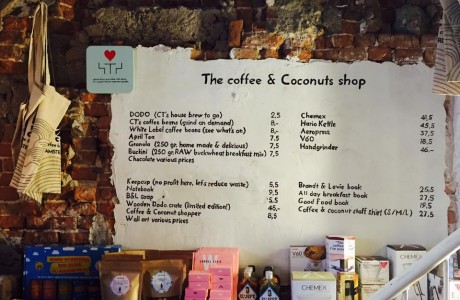 The coffee & Coconuts shop
DODO (CT's house brew to go) 2,5
CT's coffee beans (grind on demand) 8,-
White Label coffee beans (see what's on) 8,-
April Tea 7,5
Granola (250 gr. home made & delicious) 7,5
Buchi (250 gr. RAW buckwheat breakfast mix) 7,5
Chocolate various prices
Chemex 41,5
Hario Kettle 45,5
Aeropress 37,5
V60 18,5
Handgrinder 46,-
Keepcup (no profit here, let's reduce waste) 5,5
Notebook 9,5
B&L soap 5,5
Wooden Dodo crate (limited edition!) 46,-
Coffee & Coconut shopper 8,5
Wall art various prices
Brandt & Levie book 25,5
All day breakfast book 27,5
Good Food book 19,5
Coffee & coconut staff shirt (S/M/L) 27,5
V60
CHEMEX
CHEMEX